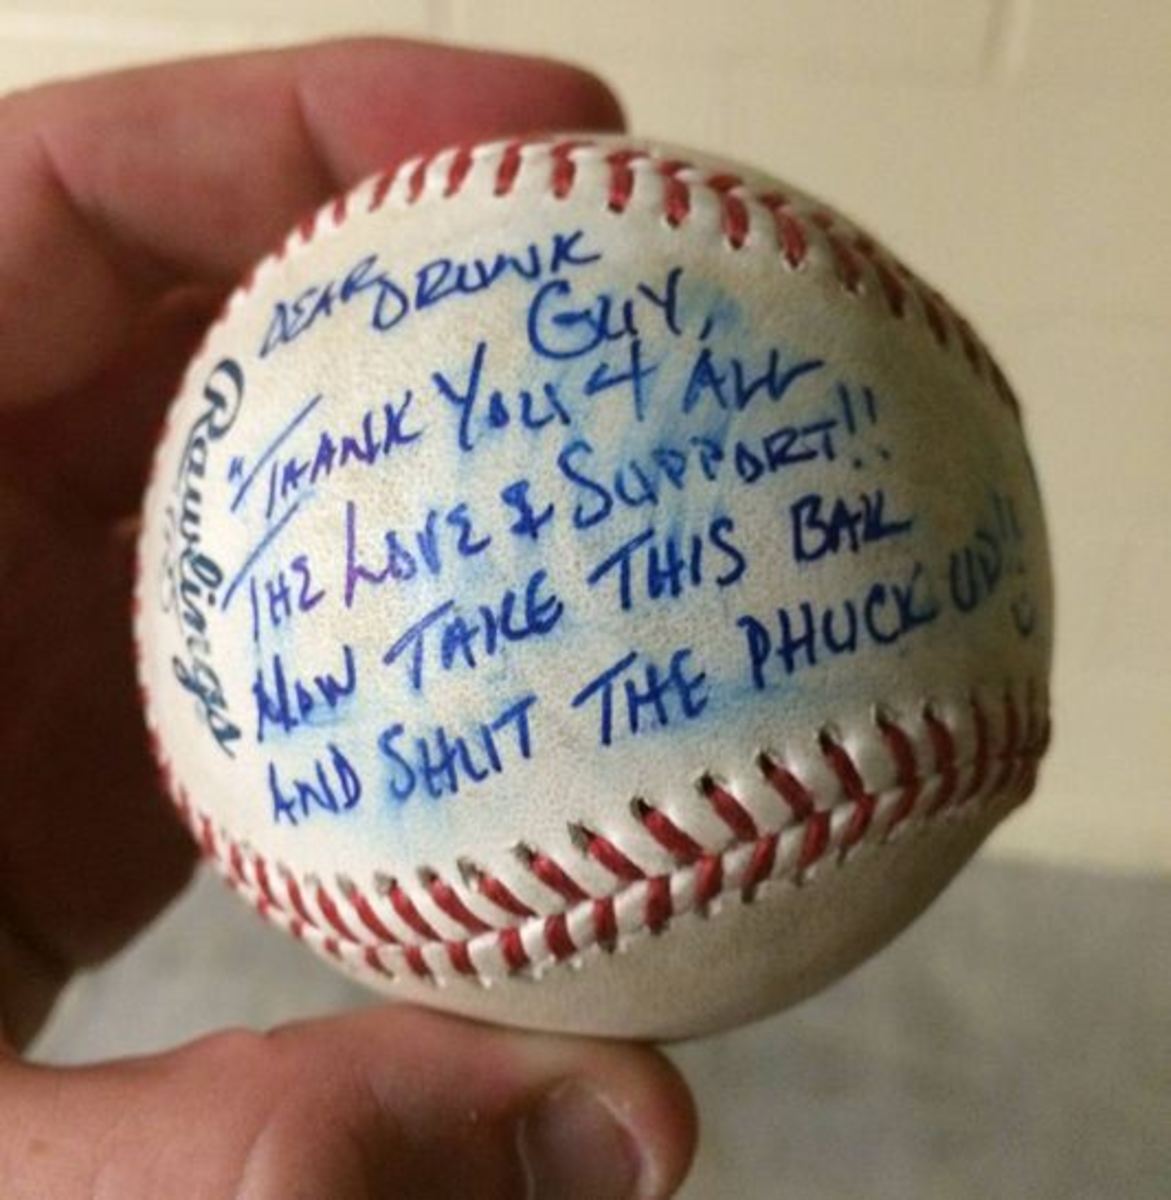 DEAR DRUNK
GUY,
"THANK YOU 4 ALL
THE LOVE & SUPPORT!!
NOW TAKE THIS BALL
AND SHUT THE PHUCK UP!!
Rawlings